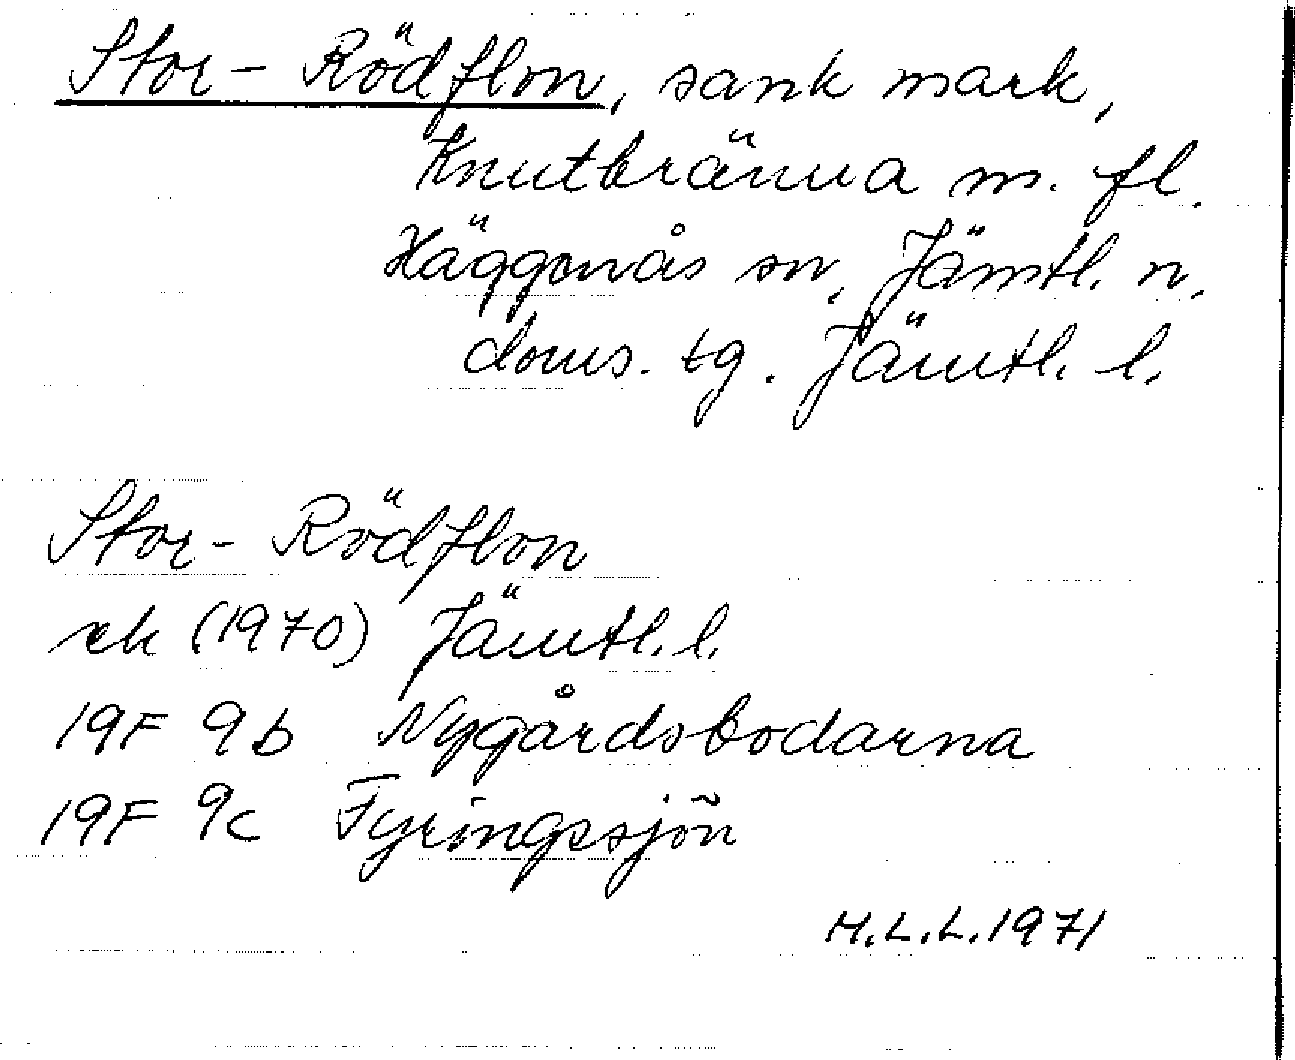 Stor-Rödflon, sank mark,
Knutbränna m. fl.
Häggenås sn, Jämtl. n.
doms. tg. Jämtl. l.
Stor-Rödflon
ek (1970) Jämtl. l.
19F 9b Nygårdsbodarna
19F 9c Fyringssjön
H.L.L. 1971